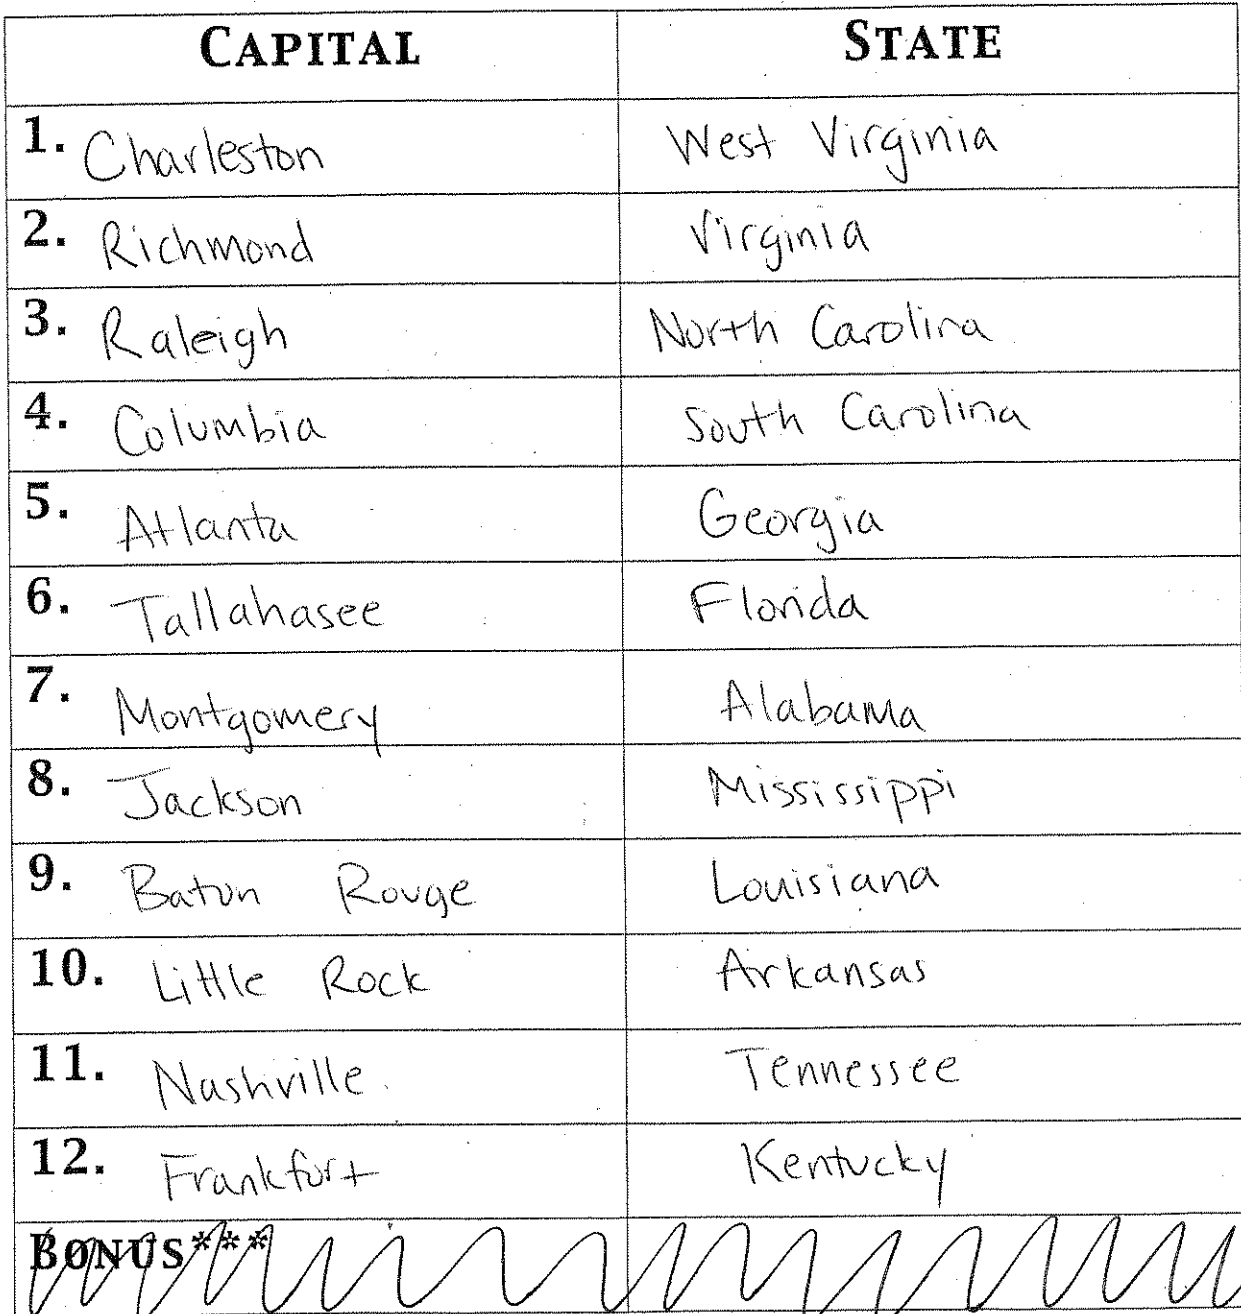 CAPITAL STATE
1. Charleston West Virginia
2. Richmond Virginia
3. Raleigh North Carolina
4. Columbia South Carolina
5. Atlanta Georgia
6. Tallahasee Florida
7. Montgomery Alabama
8. Jackson Mississippi
9. Baton Rouge Louisiana
10. Little Rock Arkansas
11. Nashville Tennessee
12. Frankfort Kentucky
BONUS***